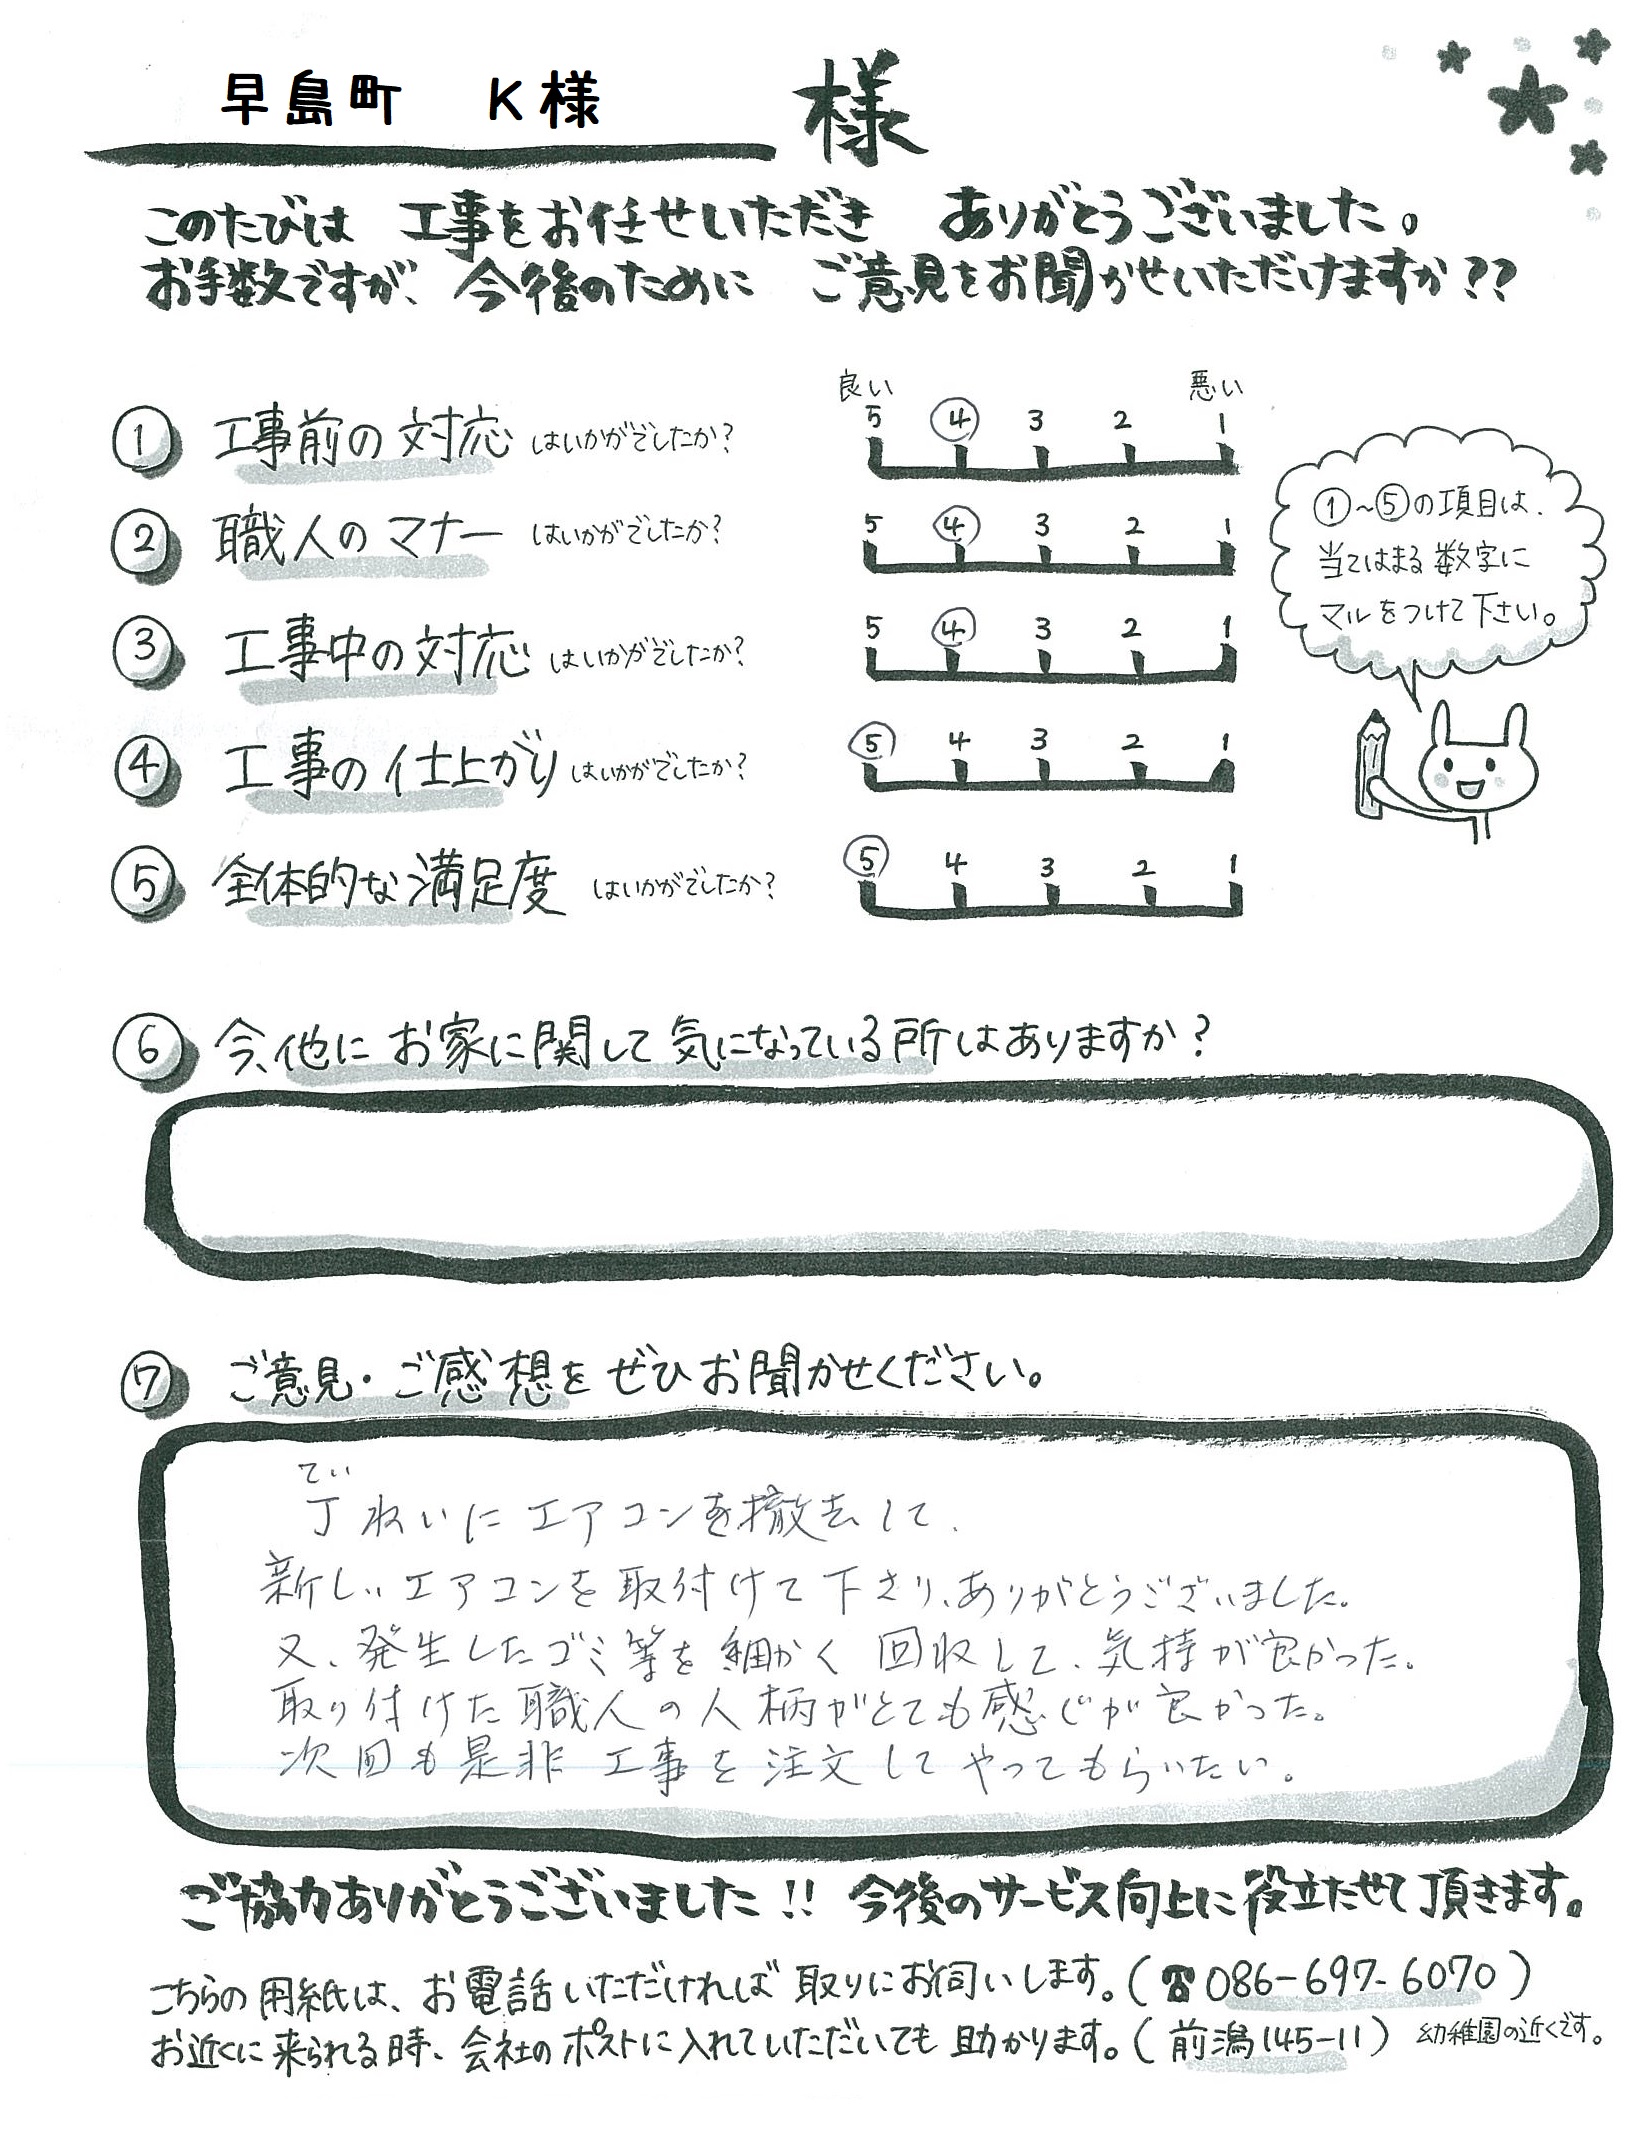 早島町 K様 様
このたびは 工事をお任せいただき ありがとうございました。
お手数ですが、今後のために ご意見をお聞かせいただけますか??
良い 悪い
① 工事前の対応 はいかがでしたか? 5 ④ 3 2 1
② 職人のマナー はいかがでしたか? 5 ④ 3 2 1
③ 工事中の対応 はいかがでしたか? 5 ④ 3 2 1
④ 工事の仕上がり はいかがでしたか? ⑤ 4 3 2 1
⑤ 全体的な満足度 はいかがでしたか? ⑤ 4 3 2 1
①~⑤の項目は、
当てはまる数字に
マルをつけて下さい。
⑥ 今、他に お家に関して気になっている所はありますか?
⑦ ご意見・ご感想を ぜひお聞かせください。
てい
丁ねいにエアコンを撤去して、
新しいエアコンを取付けて下さり、ありがとうございました。
又、発生したゴミ等を細かく回収して、気持が良かった。
取り付けた職人の人柄がとても感じが良かった。
次回も是非 工事を注文してやってもらいたい。
ご協力ありがとうございました!! 今後のサービス向上に役立たせて頂きます。
こちらの用紙は、お電話いただければ 取りにお伺いします。(☎086-697-6070)
お近くに来られる時、会社のポストに入れていただいても助かります。(前潟145-11) 幼稚園の近くです。